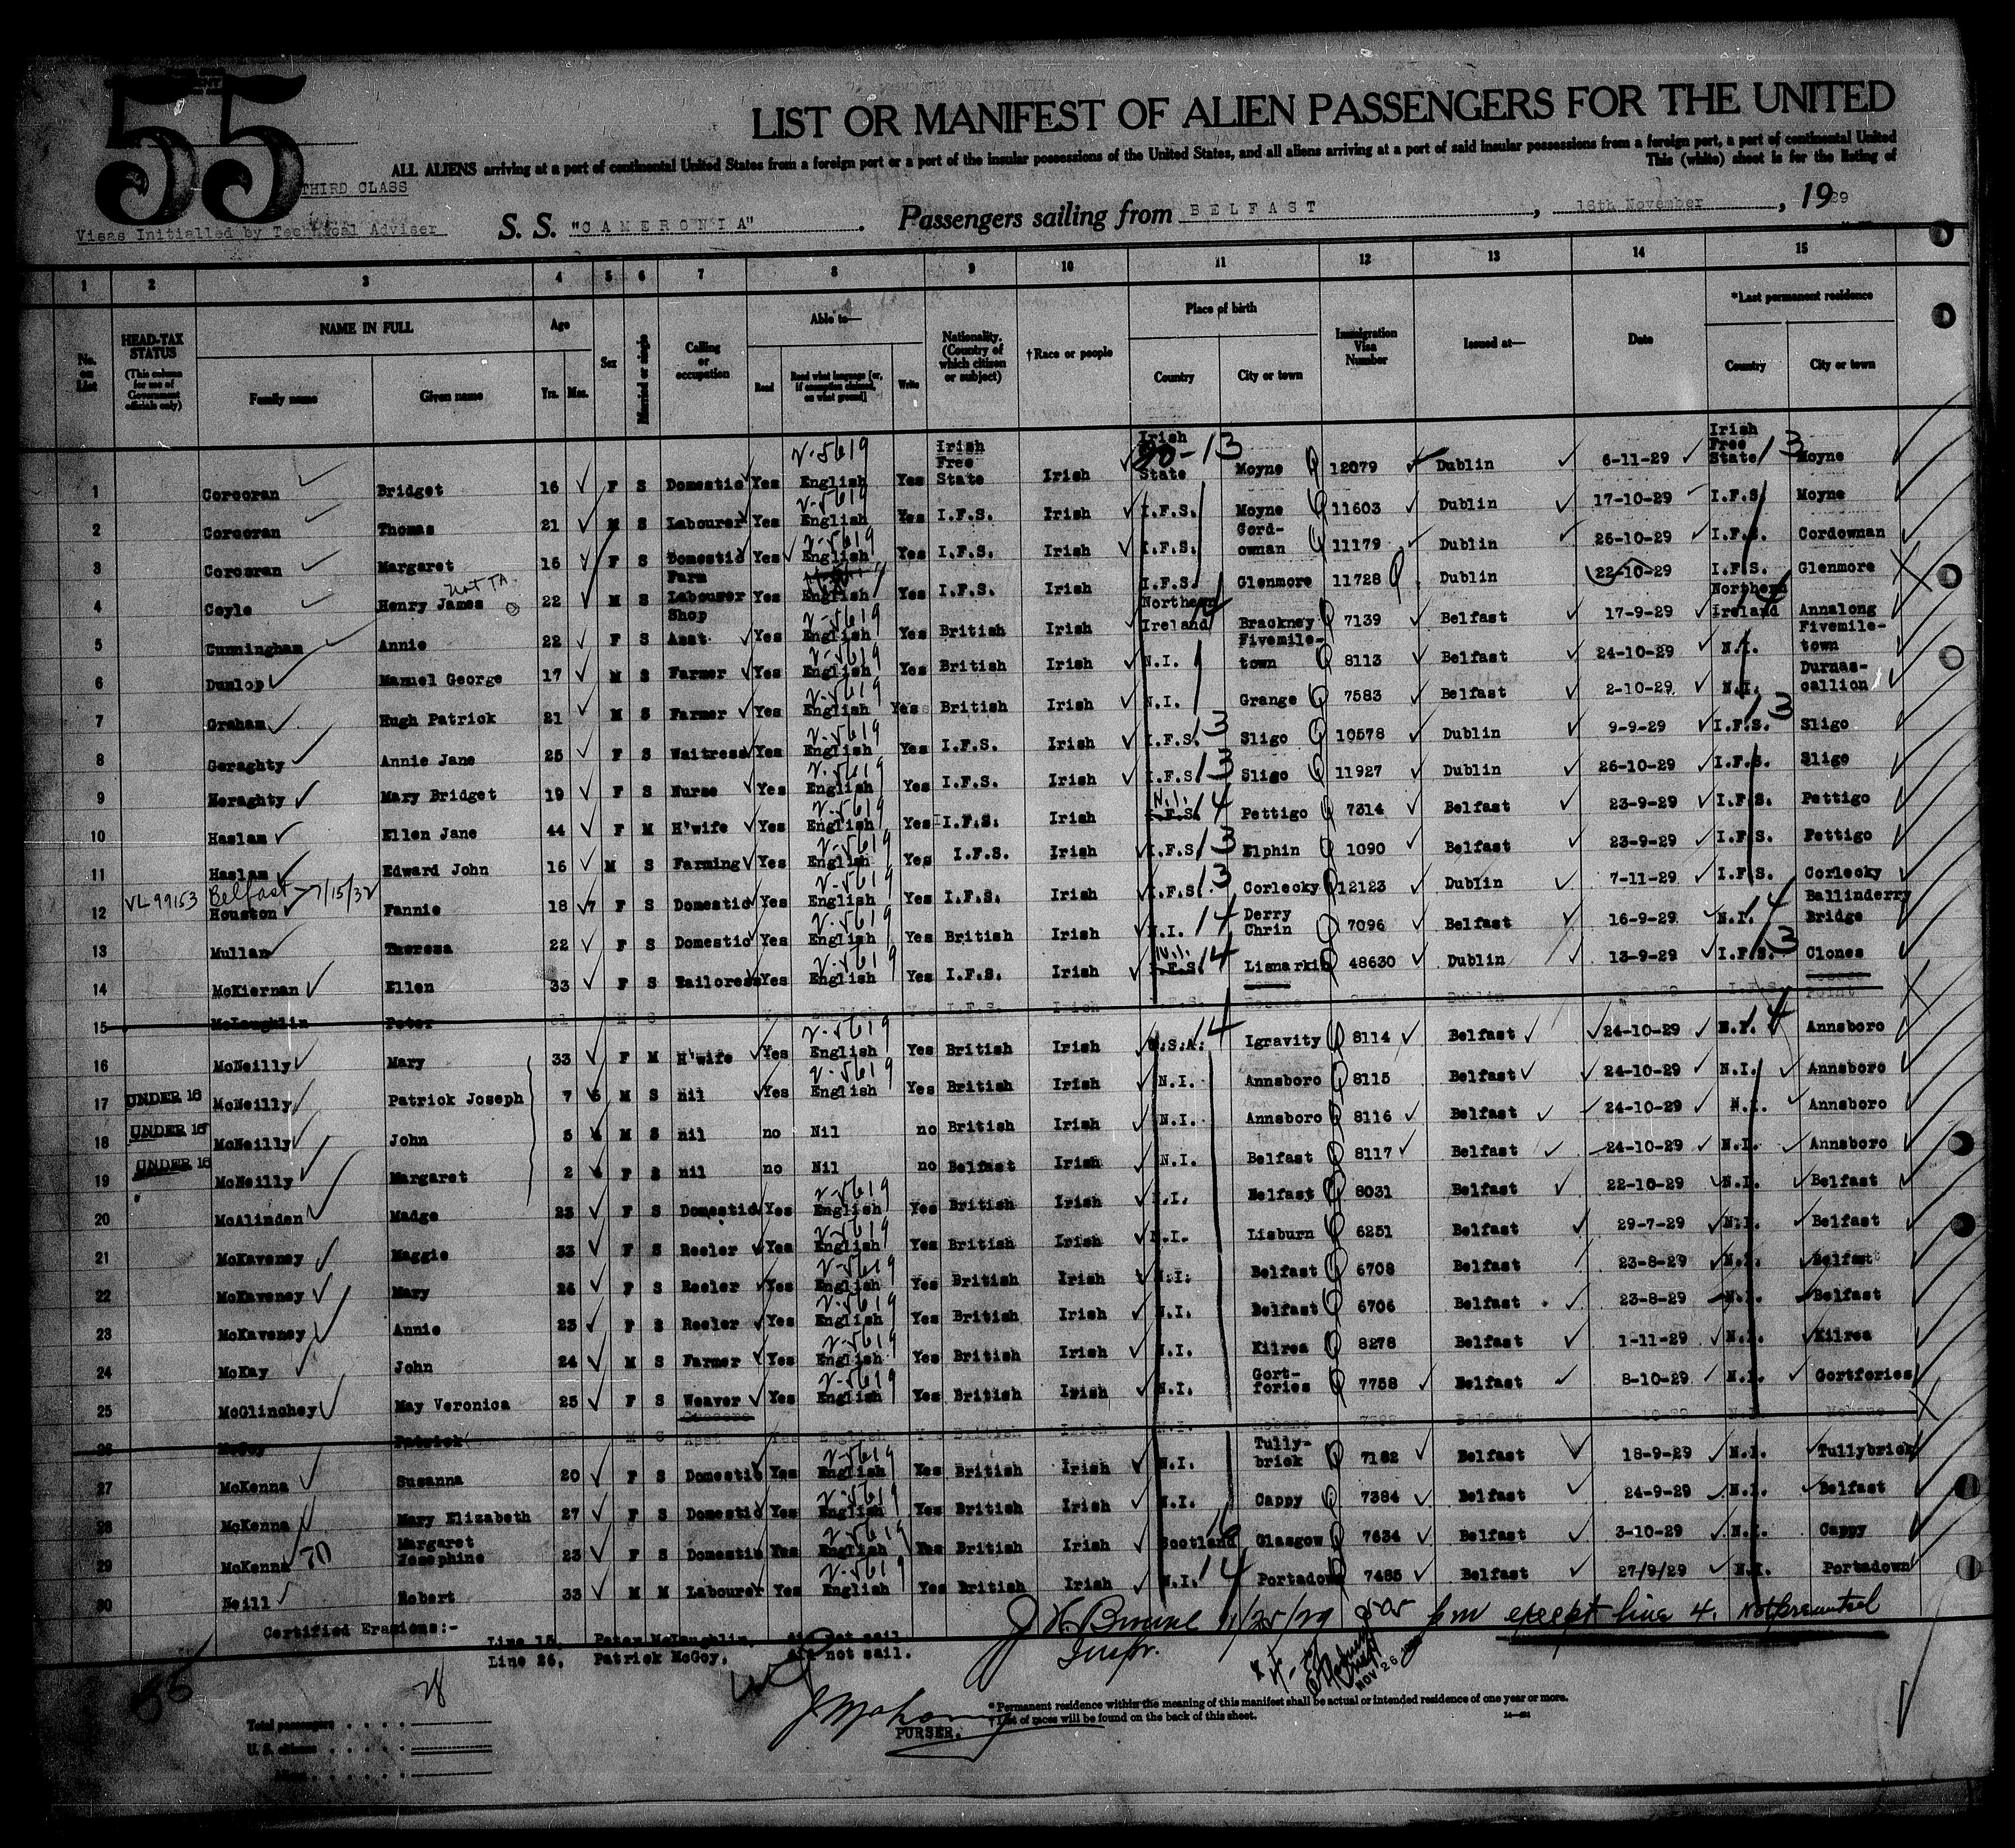 55
LIST OR MANIFEST OF ALIEN PASSENGERS FOR THE UNITED
ALL ALIENS arriving at a port of continental United States from a foreign port or a port of the insular possessions of the United States, and all aliens arriving at a port of said insular possessions from a foreign port, a port of continental United
This (white) sheet is for the listing of
THIRD CLASS
Visas Initialled by Technical Adviser
S. S. "CAMERONIA". Passengers sailing from BELFAST, 16th November, 1929
1 2 3 4 5 6 7 8 9 10 11 12 13 14 15
No. on List
HEAD-TAX STATUS (This column for use of Government officials only)
NAME IN FULL Family name Given name
Age Yrs. Mos.
Sex
Married or single
Calling or occupation
Able to— Read Read what language [or, if exemption claimed, on what ground] Write
Nationality. (Country of which citizen or subject)
†Race or people
Place of birth Country City or town
Immigration Visa Number
Issued at—
Date
*Last permanent residence Country City or town
1 Corcoran Bridget 16 F S Domestic Yes English Yes Irish Free State Irish Irish State Moyne 12079 Dublin 6-11-29 Irish Free State Moyne
2 Corcoran Thomas 21 M S Labourer Yes English Yes I.F.S. Irish I.F.S. Moyne 11603 Dublin 17-10-29 I.F.S. Moyne
3 Corcoran Margaret 16 F S Domestic Yes English Yes I.F.S. Irish I.F.S. Cord-ownan 11179 Dublin 26-10-29 I.F.S. Cordownan
4 Coyle Henry James 22 M S Farm Labourer Yes English Yes I.F.S. Irish I.F.S. Glenmore 11728 Dublin 22-10-29 I.F.S. Glenmore
5 Cunningham Annie 22 F S Shop Asst. Yes English Yes British Irish Northern Ireland Brackney 7139 Belfast 17-9-29 Northern Ireland Annalong
6 Dunlop Manuel George 17 M S Farmer Yes English Yes British Irish N.I. Fivemile-town 8113 Belfast 24-10-29 N.I. Fivemile-town
7 Graham Hugh Patrick 21 M S Farmer Yes English Yes British Irish N.I. Grange 7583 Belfast 2-10-29 N.I. Durnas-callion
8 Geraghty Annie Jane 25 F S Waitress Yes English Yes I.F.S. Irish I.F.S. Sligo 10578 Dublin 9-9-29 I.F.S. Sligo
9 Heraghty Mary Bridget 19 F S Nurse Yes English Yes I.F.S. Irish I.F.S. Sligo 11927 Dublin 26-10-29 I.F.S. Sligo
10 Haslam Ellen Jane 44 F M H'wife Yes English Yes I.F.S. Irish N.I. I.F.S. Pettigo 7314 Belfast 23-9-29 I.F.S. Pettigo
11 Haslam Edward John 16 M S Farming Yes English Yes I.F.S. Irish I.F.S. Elphin 1090 Belfast 23-9-29 I.F.S. Pettigo
VL 99153 Belfast - 7/15/32
12 Houston Fannie 18 F S Domestic Yes English Yes I.F.S. Irish I.F.S. Corlecky 12123 Dublin 7-11-29 I.F.S. Corlecky
13 Mullan Theresa 22 F S Domestic Yes English Yes British Irish N.I. Derry Chrin 7096 Belfast 16-9-29 N.I. Ballinderry Bridge
14 McKiernan Ellen 33 F S Tailoress Yes English Yes I.F.S. Irish N.I. I.F.S. Lisnarkin 48630 Dublin 13-9-29 I.F.S. Clones
15 McLaughlin Peter
16 McNeilly Mary 33 F M H'wife Yes English Yes British Irish U.S.A. Igravity 8114 Belfast 24-10-29 N.I. Annsboro
17 UNDER 16 McNeilly Patrick Joseph 7 M S nil Yes English Yes British Irish N.I. Annsboro 8115 Belfast 24-10-29 N.I. Annsboro
18 UNDER 16 McNeilly John 5 M S nil no Nil no British Irish N.I. Annsboro 8116 Belfast 24-10-29 N.I. Annsboro
19 UNDER 16 McNeilly Margaret 2 F S nil no Nil no Belfast Irish N.I. Belfast 8117 Belfast 24-10-29 N.I. Annsboro
20 McAlinden Madge 23 F S Domestic Yes English Yes British Irish N.I. Belfast 8031 Belfast 22-10-29 N.I. Belfast
21 McKaveney Maggie 33 F S Reeler Yes English Yes British Irish N.I. Lisburn 6251 Belfast 29-7-29 N.I. Belfast
22 McKaveney Mary 26 F S Reeler Yes English Yes British Irish N.I. Belfast 6708 Belfast 23-8-29 N.I. Belfast
23 McKaveney Annie 23 F S Reeler Yes English Yes British Irish N.I. Belfast 6706 Belfast 23-8-29 N.I. Belfast
24 McKay John 24 M S Farmer Yes English Yes British Irish N.I. Kilrea 8278 Belfast 1-11-29 N.I. Kilrea
25 McGlinchey May Veronica 25 F S Weaver Yes English Yes British Irish N.I. Gort-fories 7758 Belfast 8-10-29 N.I. Gortfories
26 McGoy Patrick
27 McKenna Susanna 20 F S Domestic Yes English Yes British Irish N.I. Tully-brick 7182 Belfast 18-9-29 N.I. Tullybrick
28 McKenna Mary Elizabeth 27 F S Domestic Yes English Yes British Irish N.I. Cappy 7384 Belfast 24-9-29 N.I. Belfast
29 McKenna Margaret Josephine 23 F S Domestic Yes English Yes British Irish Scotland Glasgow 7634 Belfast 3-10-29 N.I. Cappy
30 Neill Robert 33 M M Labourer Yes English Yes British Irish N.I. Portadown 7485 Belfast 27/9/29 N.I. Portadown
Certified Erasions:-
Line 15, Peter McLaughlin, did not sail
Line 26, Patrick McGoy, did not sail.
J H Browne 11/25/29 505 pm except line 4. Not presented
Inspr.
NOV 26
J Mahony
PURSER.
Total passengers 28
U. S. citizens
Aliens
* Permanent residence within the meaning of this manifest shall be actual or intended residence of one year or more.
† List of races will be found on the back of this sheet.